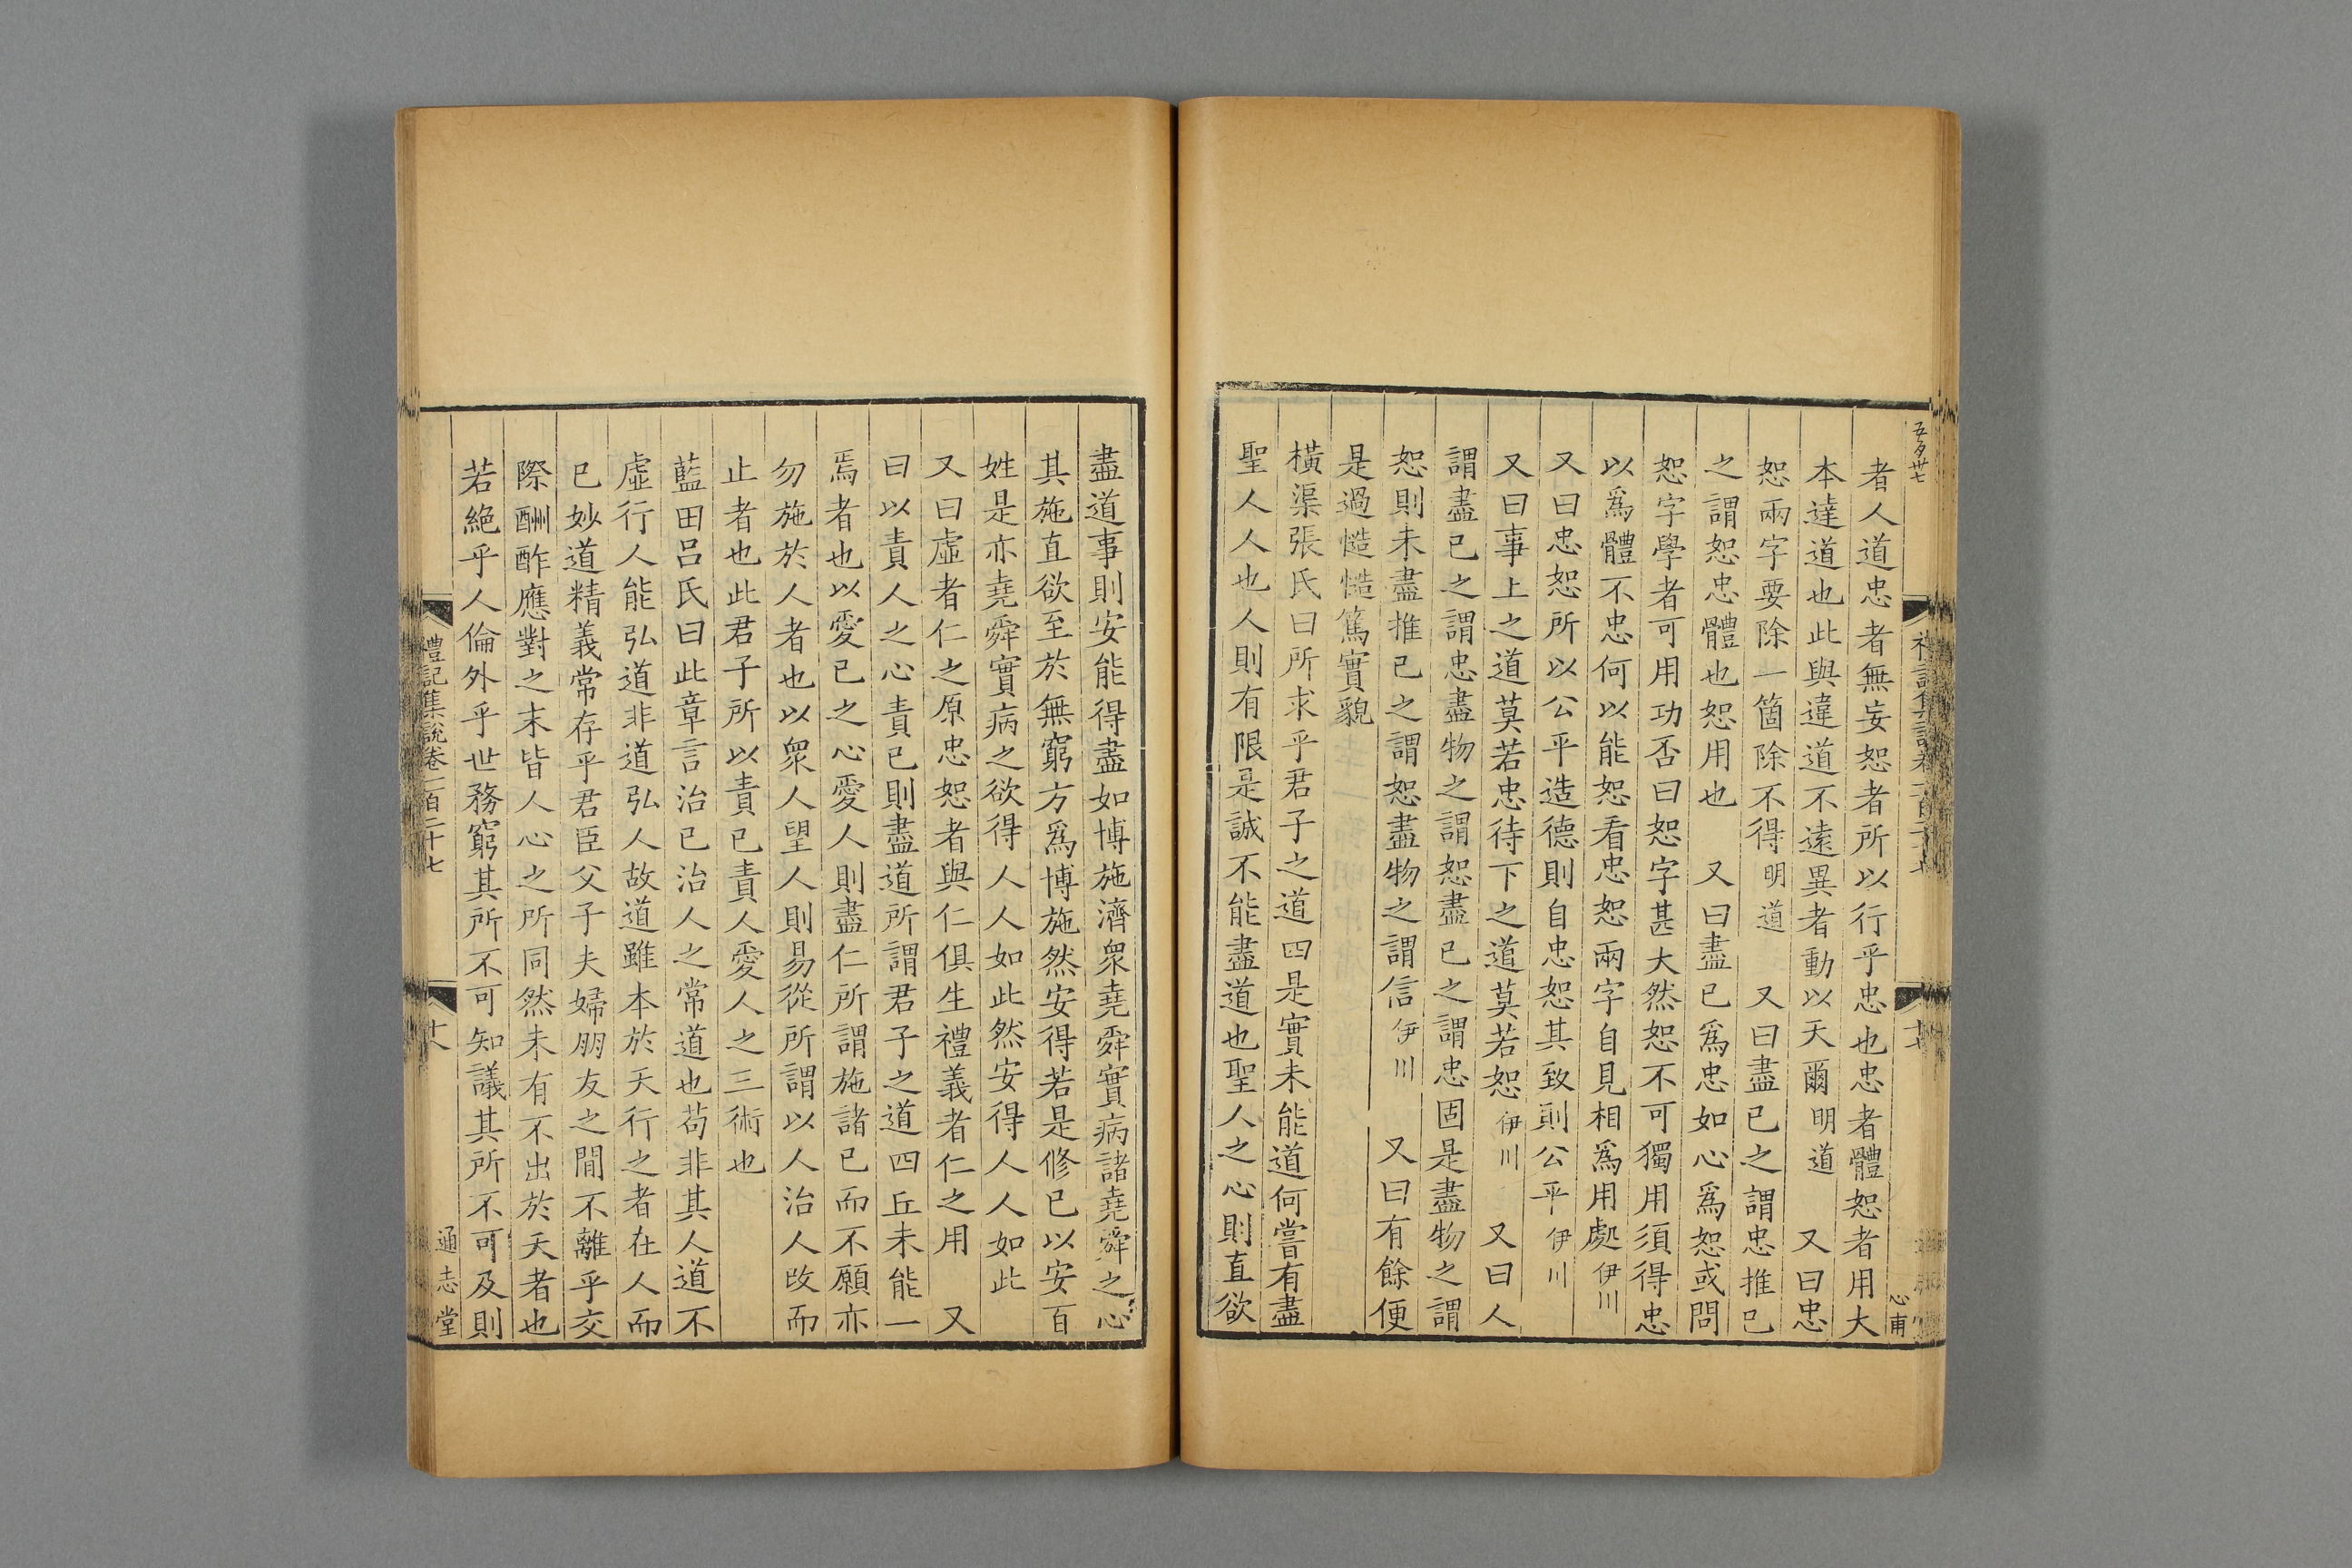 者人道忠者無妄恕者所以行乎忠也忠者體恕者用大
本達道也此與違道不遠異者動以天爾明道 又曰忠
恕兩字要除一箇除不得明道 又曰盡已之謂忠推已
之謂恕忠體也恕用也 又曰盡已爲忠如心爲恕或問
恕字學者可用功否曰恕字甚大然恕不可獨用須得忠
以爲體不忠何以能恕看忠恕兩字自見相爲用處伊川
又曰忠恕所以公平造德則自忠恕其致則公平伊川
又曰事上之道莫若忠待下之道莫若恕伊川 又曰人
謂盡已之謂忠盡物之謂恕盡已之謂忠固是盡物之謂
恕則未盡推已之謂恕盡物之謂信伊川 又曰有餘便
是過慥慥篤實貌
橫渠張氏曰所求乎君子之道四是實未能道何嘗有盡
聖人人也人則有限是誠不能盡道也聖人之心則直欲
盡道事則安能得盡如博施濟衆堯舜實病諸堯舜之心
其施直欲至於無窮方爲博施然安得若是修已以安百
姓是亦堯舜實病之欲得人人如此然安得人人如此
又曰虛者仁之原忠恕者與仁俱生禮義者仁之用 又
曰以責人之心責已則盡道所謂君子之道四丘未能一
焉者也以愛已之心愛人則盡仁所謂施諸已而不願亦
勿施於人者也以衆人望人則易從所謂以人治人改而
止者也此君子所以責已責人愛人之三術也
藍田呂氏曰此章言治已治人之常道也苟非其人道不
虛行人能弘道非道弘人故道雖本於天行之者在人而
已妙道精義常存乎君臣父子夫婦朋友之間不離乎交
際酬酢應對之末皆人心之所同然未有不出於天者也
若絕乎人倫外乎世務窮其所不可知議其所不可及則
禮記集說卷一百二十七
十八
通志堂